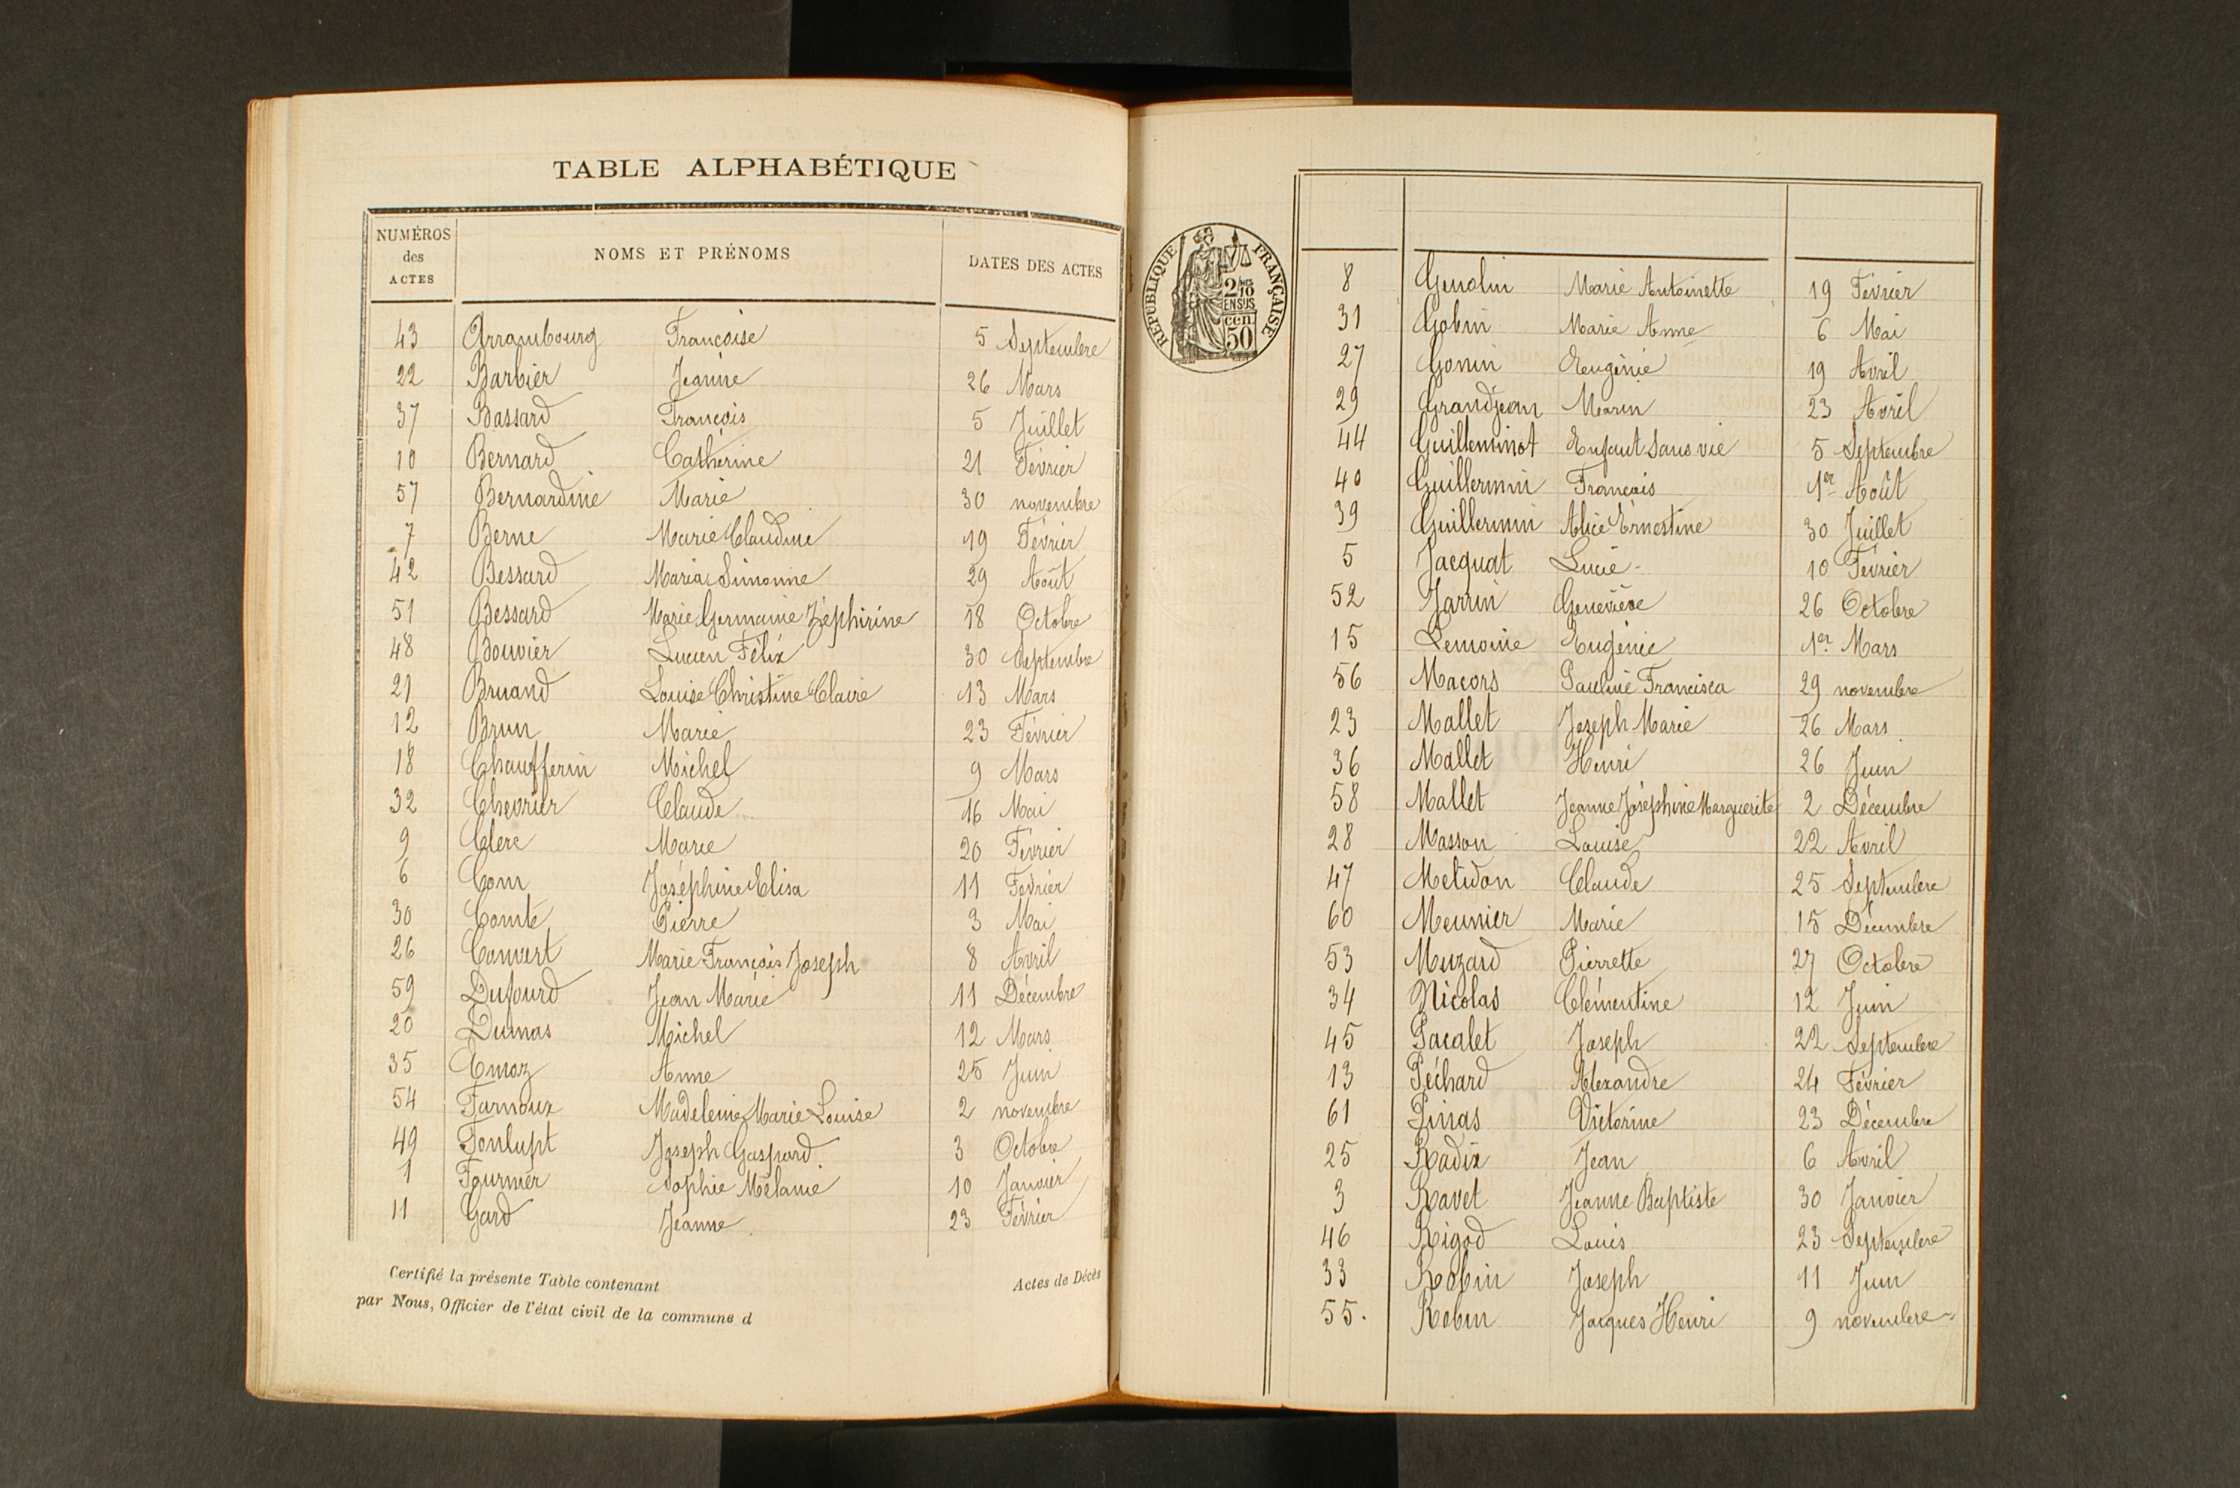 TABLE ALPHABÉTIQUE
NUMÉROS des ACTES NOMS ET PRÉNOMS DATES DES ACTES
43 Arrambourg Françoise 5 Septembre
22 Barbier Jeanne 26 Mars
37 Bassard François 5 Juillet
10 Bernard Catherine 21 Février
57 Bernardine Marie 30 novembre
7 Berne Marie Claudine 19 Février
42 Bessard Maria Simonne 29 Août
51 Bessard Marie Germaine Zéphirine 18 Octobre
48 Bouvier Lucien Félix 30 Septembre
21 Bruand Louise Christine Claire 13 Mars
12 Brun Marie 23 Février
18 Chaufferin Michel 9 Mars
32 Chevrier Claude 16 Mai
9 Clerc Marie 20 Février
6 Com Joséphine Elisa 11 Février
30 Comte Pierre 3 Mai
26 Convert Marie François Joseph 8 Avril
59 Dufourd Jean Marie 11 Décembre
20 Dumas Michel 12 Mars
35 Emoz Anne 25 Juin
54 Farnoux Madeleine Marie Louise 2 novembre
49 Fonlupt Joseph Gaspard 3 Octobre
1 Fournier Sophie Mélanie 10 Janvier
11 Gard Jeanne 23 Février
Certifié la présente Table contenant Actes de Décès
par Nous, Officier de l'état civil de la commune d
RÉPUBLIQUE FRANÇAISE
2/10 EN SUS
50 cen
8 Genolin Marie Antoinette 19 Février
31 Gobin Marie Anne 6 Mai
27 Gonin Eugénie 19 Avril
29 Grandjean Marin 23 Avril
44 Guilleminot Enfant sans vie 5 Septembre
40 Guillermin François 1er Août
39 Guillermin Alice Ernestine 30 Juillet
5 Jacquat Lucie 10 Février
52 Jarrin Geneviève 26 Octobre
15 Lemoine Eugénie 1er Mars
56 Macors Pauline Francisca 29 novembre
23 Mallet Joseph Marie 26 Mars
36 Mallet Henri 26 Juin
58 Mallet Jeanne Joséphine Marguerite 2 Décembre
28 Masson Louise 22 Avril
47 Melidon Claude 25 Septembre
60 Meunier Marie 15 Décembre
53 Muzard Pierrette 27 Octobre
34 Nicolas Clémentine 12 Juin
45 Pacalet Joseph 22 Septembre
13 Péchard Alexandre 24 Février
61 Pinas Victorine 23 Décembre
25 Radix Jean 6 Avril
3 Ravet Jeanne Baptiste 30 Janvier
46 Rigod Louis 23 Septembre
33 Robin Joseph 11 Juin
55. Robin Jacques Henri 9 novembre